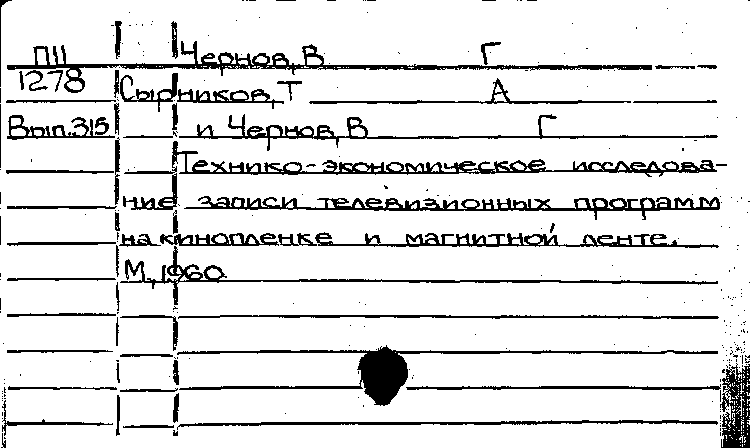 П11 Чернов, В Г
1278 Сырников, Т А
Вып.315 и Чернов, В Г
Технико-экономическое исследова-
ние записи телевизионных программ
на кинопленке и магнитной ленте.
М., 1960